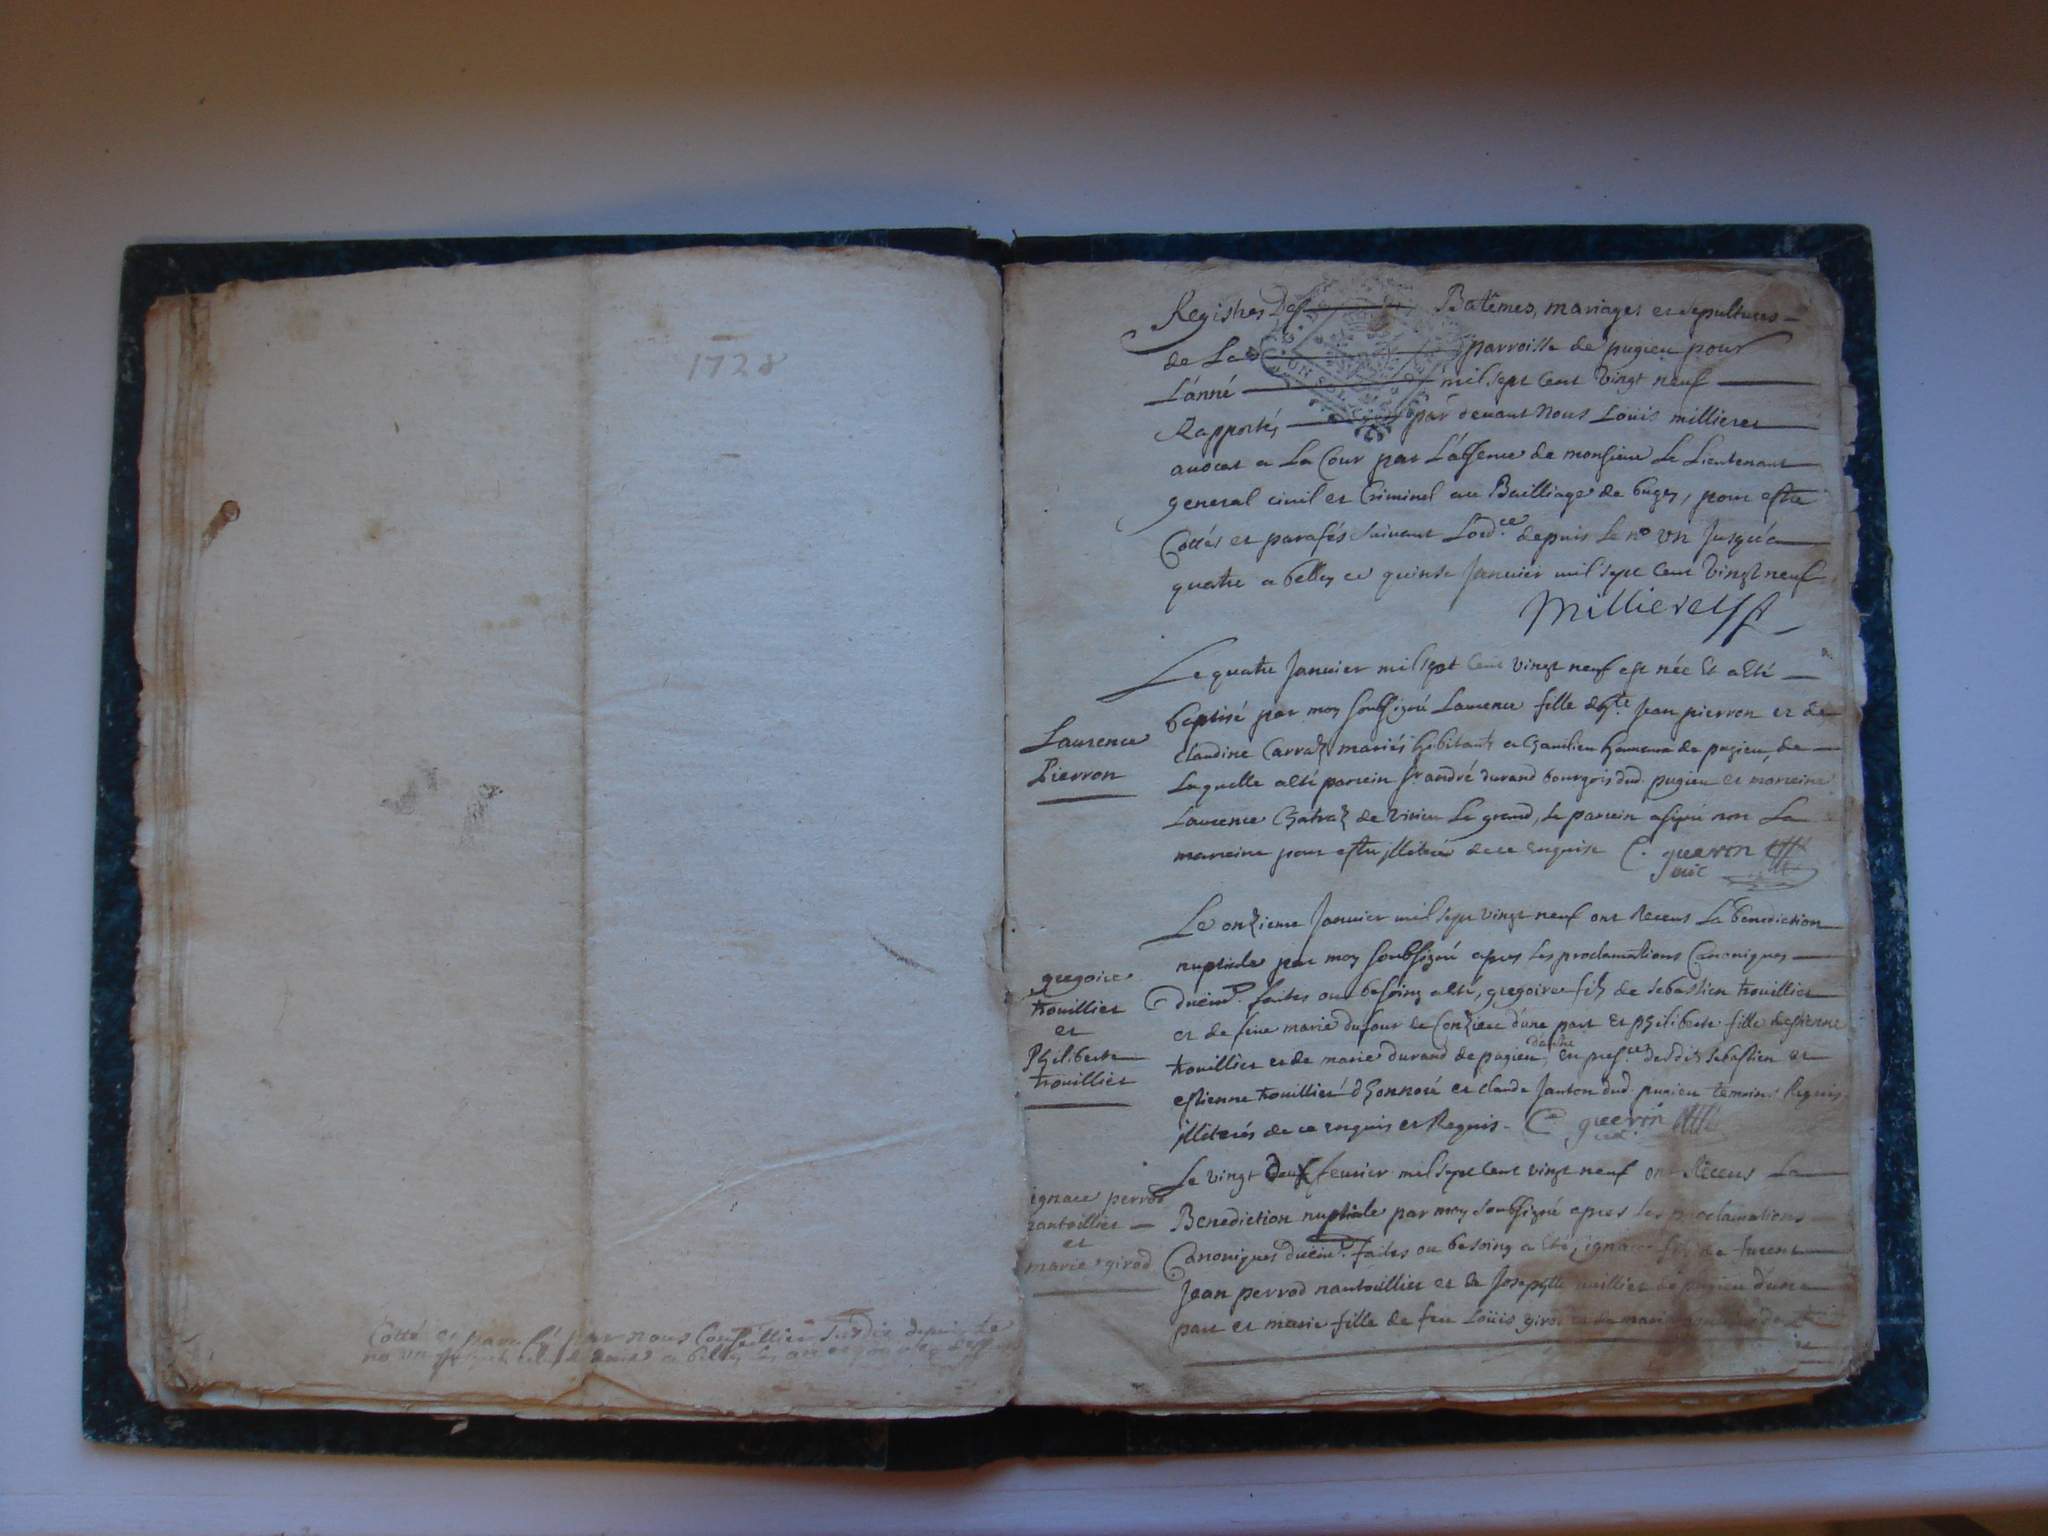 1728
Cotté et parafé par nous Conseillier susdit depuis le
no un
Registres Des Batêmes, mariages et sepultures
de La parroisse de pugieu pour
L'anné mil sept cent vingt neuf
Rapportés par devant Nous Loüis millieret
avocat a La Cour par L'absence de monsieur Le Lieutenant
general civil et Criminel au Bailliage de bugey, pour estre
Cottés et parafés suivant L'ord.ce depuis le no un Jusqu'a
quatre a belley ce quinse Janvier mil sept cent vingt neuf
Millieret
Le quatre Janvier mil sept cent vingt neuf est née et a esté
Laurence
Pierron
baptisé par moy soubsigné Laurence fille d'h.te Jean pierron et de
claudine Carraz mariés habitants a Chamilieu hameau de pugieu, de
Laquelle a esté parrein Sr andré durand bourgois dud. pugieu et marreine
Laurence de virieu Le grand, le parrein a signé non La
marreine pour estre illiterée de ce enquise C. guerron
Le onzieme Janvier mil sept vingt neuf ont Receus La benediction
gregoire
trouillier
et
Philiberte
trouillier
nuptiale par moy soubsigné apres les proclamations Canoniques
duëm.t faites ou besoing a esté, gregoire fils de sebastien trouillier
et de feue marie dufour de Conzieu d'une part et philiberte fille d'estienne
trouillier et de marie durand de pugieu d'autre, en pres.ce desdits sebastien et
estienne trouillier d'honnoré et claude Janton dud. pugieu temoins Requis
illiterés de ce enquis et Requis. C. guerron
Le vingt deux feurier mil sept cent vingt neuf ont Receus La
ignace perrod
nantoillier
et
marie girod
Benediction nuptiale par moy soubsigné apres les proclamations
Canoniques duëm.t faites ou besoing a esté, ignace fils de
Jean perrod nantouillier et de Josephte de pugieu d'une
part et marie fille de feu Loüis girod et de marie